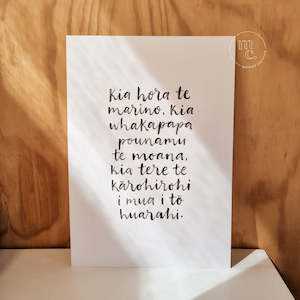 kia hora te
marino, kia
whakapapa
pounamu
te moana,
kia tere te
kārohirohi
i mua i tō
huarahi.